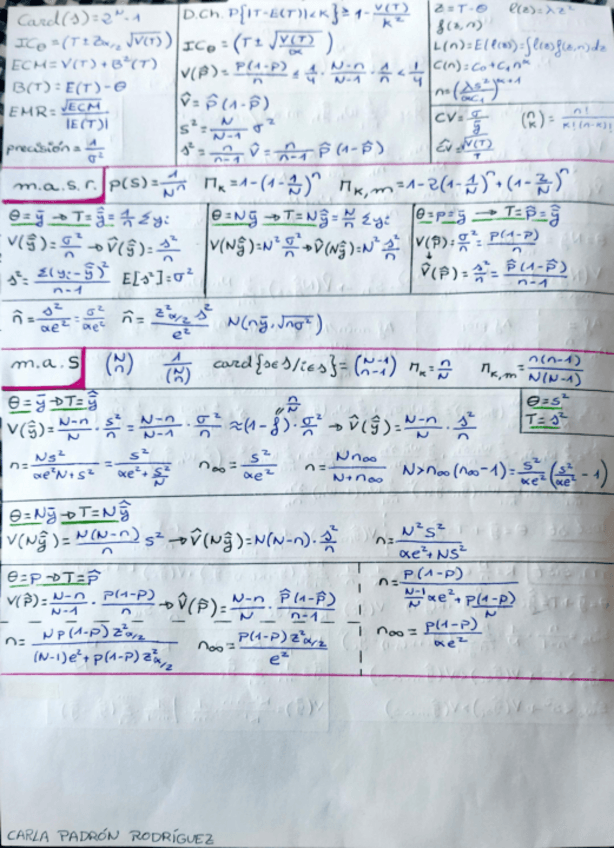 Card(s) = 2ᴺ-1
IC_θ = (T ± Z_α/2 √V(T))
ECM = V(T) + B²(T)
B(T) = E(T) - θ
EMR = √ECM / |E(T)|
precisión = 1/σ²
D.Ch. P{|T-E(T)|<K} ≥ 1 - V(T)/K²
IC_θ = (T ± √(V(T)/α))
V(p̂) = P(1-P)/n ≤ 1/4 · N/(N-1) · 1/n < 1/4
V̂ = p̂(1-p̂)
S² = N/(N-1) σ²
s² = n/(n-1) V̂ = n/(n-1) p̂(1-p̂)
Z = T-θ ℓ(z) = λz²
f(z,n)
L(n) = E(ℓ(z)) = ∫ℓ(z)f(z,n)dz
C(n) = C₀ + C₁n
CV = σ/ȳ (n k) = n!/(k!(n-k)!)
ĈV = √V(T)/T
m.a.s.r. P(S) = 1/Nⁿ Π_K = 1-(1-1/N)ⁿ Π_K,m = 1-2(1-1/N)ⁿ+(1-2/N)ⁿ
θ=ȳ → T=ŷ = 1/n Σyᵢ
V(ŷ) = σ²/n → V̂(ŷ) = s²/n
s² = Σ(yᵢ-ŷ)²/(n-1) E[s²] = σ²
θ=Nȳ → T=Nŷ = N/n Σyᵢ
V(Nŷ) = N² σ²/n → V̂(Nŷ) = N² s²/n
θ=p=ȳ → T=p̂=ŷ
V(p̂) = σ²/n = P(1-P)/n
↓
V̂(p̂) = s²/n = p̂(1-p̂)/(n-1)
n̂ = s²/αe² = σ²/αe² n̂ = Z²_α/2 s²/e² N(nȳ, √nσ²)
m.a.s (N n) 1/(N n) card{s∈S/i∈s} = (N-1 n-1) Π_K = n/N Π_K,m = n(n-1)/N(N-1)
θ=ȳ → T=ŷ
V(ŷ) = (N-n)/N · S²/n = (N-n)/(N-1) · σ²/n ≈ (1-f) · σ²/n → V̂(ŷ) = (N-n)/N · s²/n
n/N
θ=S²
T=s²
n = NS²/(αe²N+S²) = S²/(αe²+S²/N) n∞ = S²/αe² n = Nn∞/(N+n∞) N>n∞(n∞-1) = S²/αe² (S²/αe² - 1)
θ=Nȳ → T=Nŷ
V(Nŷ) = N(N-n)/n S² → V̂(Nŷ) = N(N-n) · s²/n n = N²S²/(αe²+NS²)
θ=p → T=p̂
V(p̂) = (N-n)/(N-1) · P(1-P)/n → V̂(p̂) = (N-n)/N · p̂(1-p̂)/(n-1)
n = NP(1-P)Z²_α/2 / ((N-1)e²+P(1-P)Z²_α/2) n∞ = P(1-P)Z²_α/2 / e²
n = P(1-P) / ((N-1)/N αe² + P(1-P)/N)
n∞ = P(1-P)/αe²
CARLA PADRÓN RODRÍGUEZ